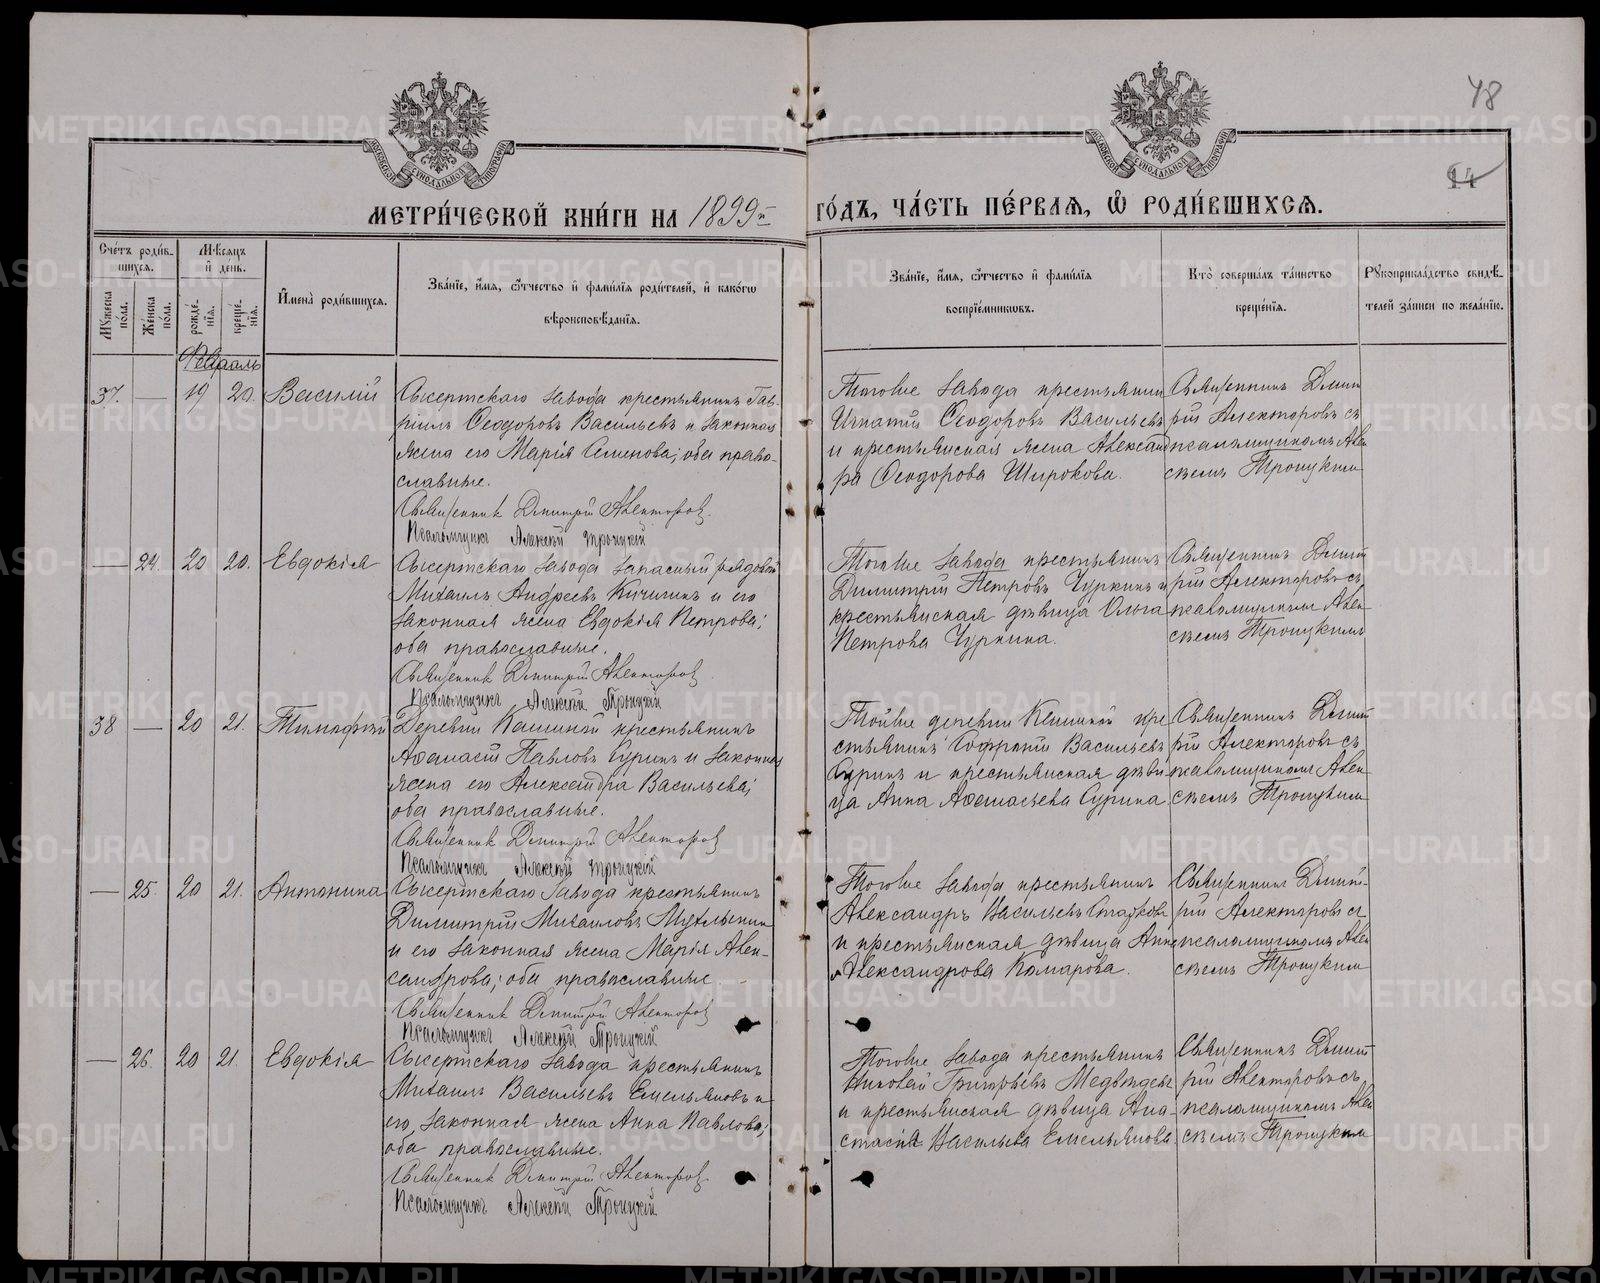 48
14
МОСКОВСКОЙ СѴНОДАЛЬНОЙ ТИПОГРАФІИ
МОСКОВСКОЙ СѴНОДАЛЬНОЙ ТИПОГРАФІИ
МЕТРИ́ЧЕСКОЙ КНИ́ГИ НА 1899й ГО́ДЪ, ЧА́СТЬ ПЕ́РВАЯ, Ѡ РОДИ́ВШИХСЯ.
Сче́тъ роди́в-
шихся.
Мꙋ́жеска по́ла.
Же́нска по́ла.
Мѣ́сяцъ
и҆ де́нь.
рожде́-
нїя.
креще́-
нїя.
И҆мена̀ роди́вшихся.
Зва́нїе, и҆́мя, ѻ҆́тчество и҆ фами́лїя роди́телей, и҆ како́гѡ
вѣроисповѣ́данїя.
Зва́нїе, и҆́мя, ѻ҆́тчество и҆ фами́лїя
воспрїе́мникѡвъ.
Кто̀ соверша́лъ та́инство
креще́нїя.
Рꙋкоприкла́дство свидѣ́-
телей за́писи по жела́нїю.
Февраль
37. — 19 20. Василій
Сысертскаго завода крестьянинъ Гав-
ріилъ Ѳеодоровъ Васильевъ и законная
жена его Марія Семенова; оба право-
славные.
Священник Дмитрій Алекторов.
Псаломщикъ Алексій Троицкій
Тогоже завода крестьянин
Игнатій Ѳеодоровъ Васильевъ
и крестьянская жена Александ
ра Ѳеодорова Широкова.
Священникъ Дмит
рій Алекторовъ съ
псаломщикомъ Алек
сѣемъ Троицким
— 24. 20 20. Евдокія
Сысертскаго завода запасный рядовой
Михаилъ Андреевъ Кичигинъ и его
законная жена Евдокія Петрова;
оба православные.
Священник Дмитрій Алекторов.
Псаломщикъ Алексій Троицкій
Тогоже завода крестьянинъ
Димитрій Петровъ Чуркинъ и
крестьянская дѣвица Ольга
Петрова Чуркина.
Священникъ Дмит
рій Алекторовъ съ
псаломщикомъ Алек-
сѣемъ Троицкимъ
38 — 20 21. Тимофей
Деревни Кашиной крестьянинъ
Аѳанасій Павловъ Суринъ и законная
жена его Александра Васильева;
оба православные.
Священник Дмитрій Алекторов
Псаломщикъ Алексій Троицкій
Тойже деревни Кашиной кре
стьянинъ Софроній Васильевъ
Суринъ и крестьянская дѣви
ца Анна Аѳанасьева Сурина
Священникъ Дмит
рій Алекторовъ съ
псаломщикомъ Алек-
сѣемъ Троицким
— 25. 20 21. Антонина
Сысертскаго завода крестьянинъ
Димитрій Михаиловъ
и его законная жена Марія Алек-
сандрова; оба православные.
Священник Дмитрій Алекторов
Псаломщикъ Алексій Троицкій
Тогоже завода крестьянинъ
Александръ Васильевъ
и крестьянская дѣвица Анна
Александрова Комарова.
Священникъ Дмит-
рій Алекторовъ съ
псаломщикомъ Алек
сѣемъ Троицким
— 26. 20 21. Евдокія
Сысертскаго завода крестьянинъ
Михаилъ Васильевъ Емельяновъ и
его законная жена Анна Павлова;
оба православные.
Священник Дмитрій Алекторов.
Псаломщикъ Алексій Троицкій
Тогоже завода крестьянинъ
Николай Григорьевъ Медвѣдевъ
и крестьянская дѣвица Ана-
стасія Васильева Емельянова
Священникъ Дмит
рій Алекторовъ съ
псаломщикомъ Алек
сѣемъ Троицким
METRIKI.GASO-URAL.RU